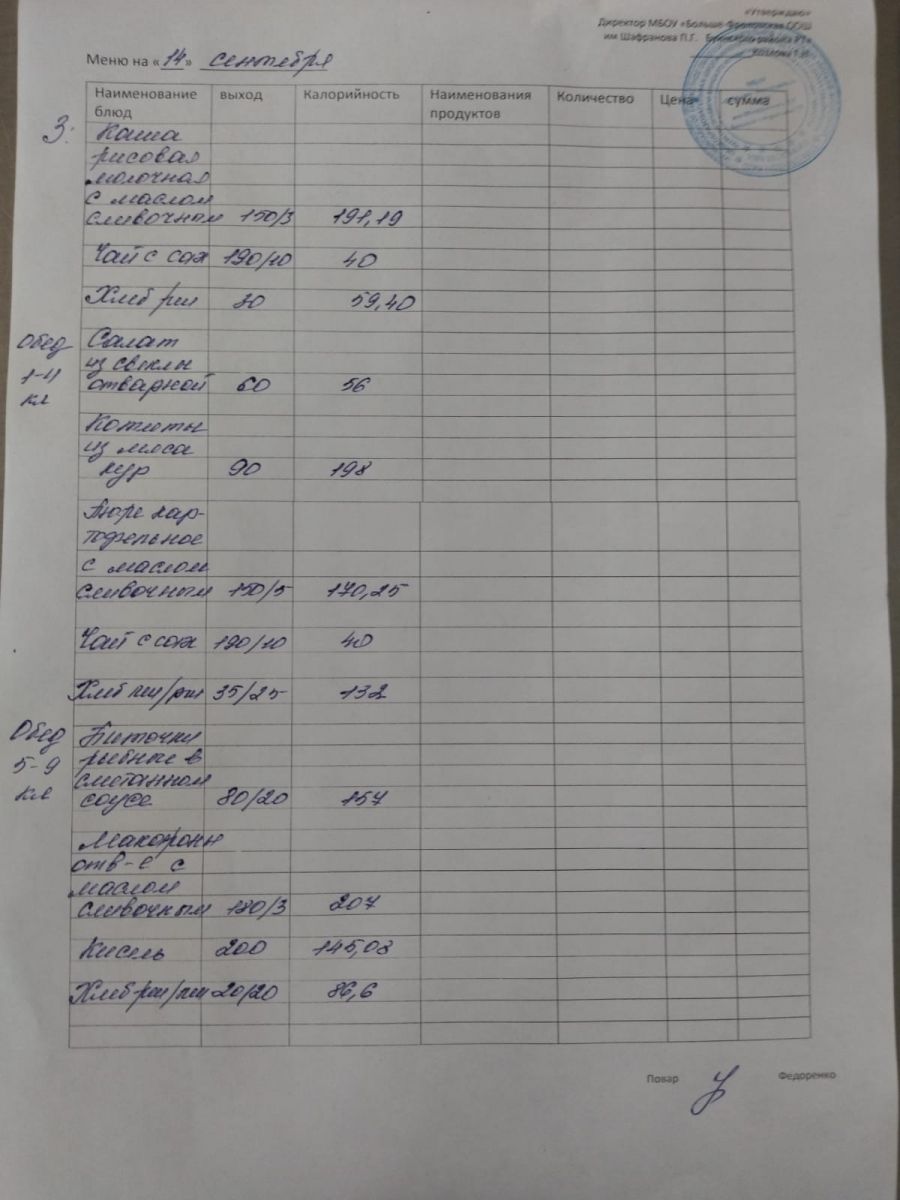 «Утверждаю»
Директор МБОУ «Больше-Фроловская ООШ
им Шафранова П.Г. Буинского района РТ»
Козлова Т.Н.
Меню на «14» сентября
Наименование блюд выход Калорийность Наименования продуктов Количество Цена сумма
З: Каша
рисовая
молочная
с маслом
сливочным 150/3 191,19
Чай с сах 190/10 40
Хлеб рж 30 59,40
Обед Салат
из свеклы
1-4 отварной 60 56
кл
Котлеты
из мяса
кур 90 198
Пюре кар-
тофельное
с маслом
сливочным 150/5 170,25
Чай с сах 190/10 40
Хлеб пш/рж 35/25 132
Обед Биточки
5-9 рыбные в
сметанном
кл соусе 80/20 157
Макороны
отв-е с
маслом
сливочным 180/3 207
Кисель 200 145,08
Хлеб рж/пш 20/20 86,6
Повар Федоренко